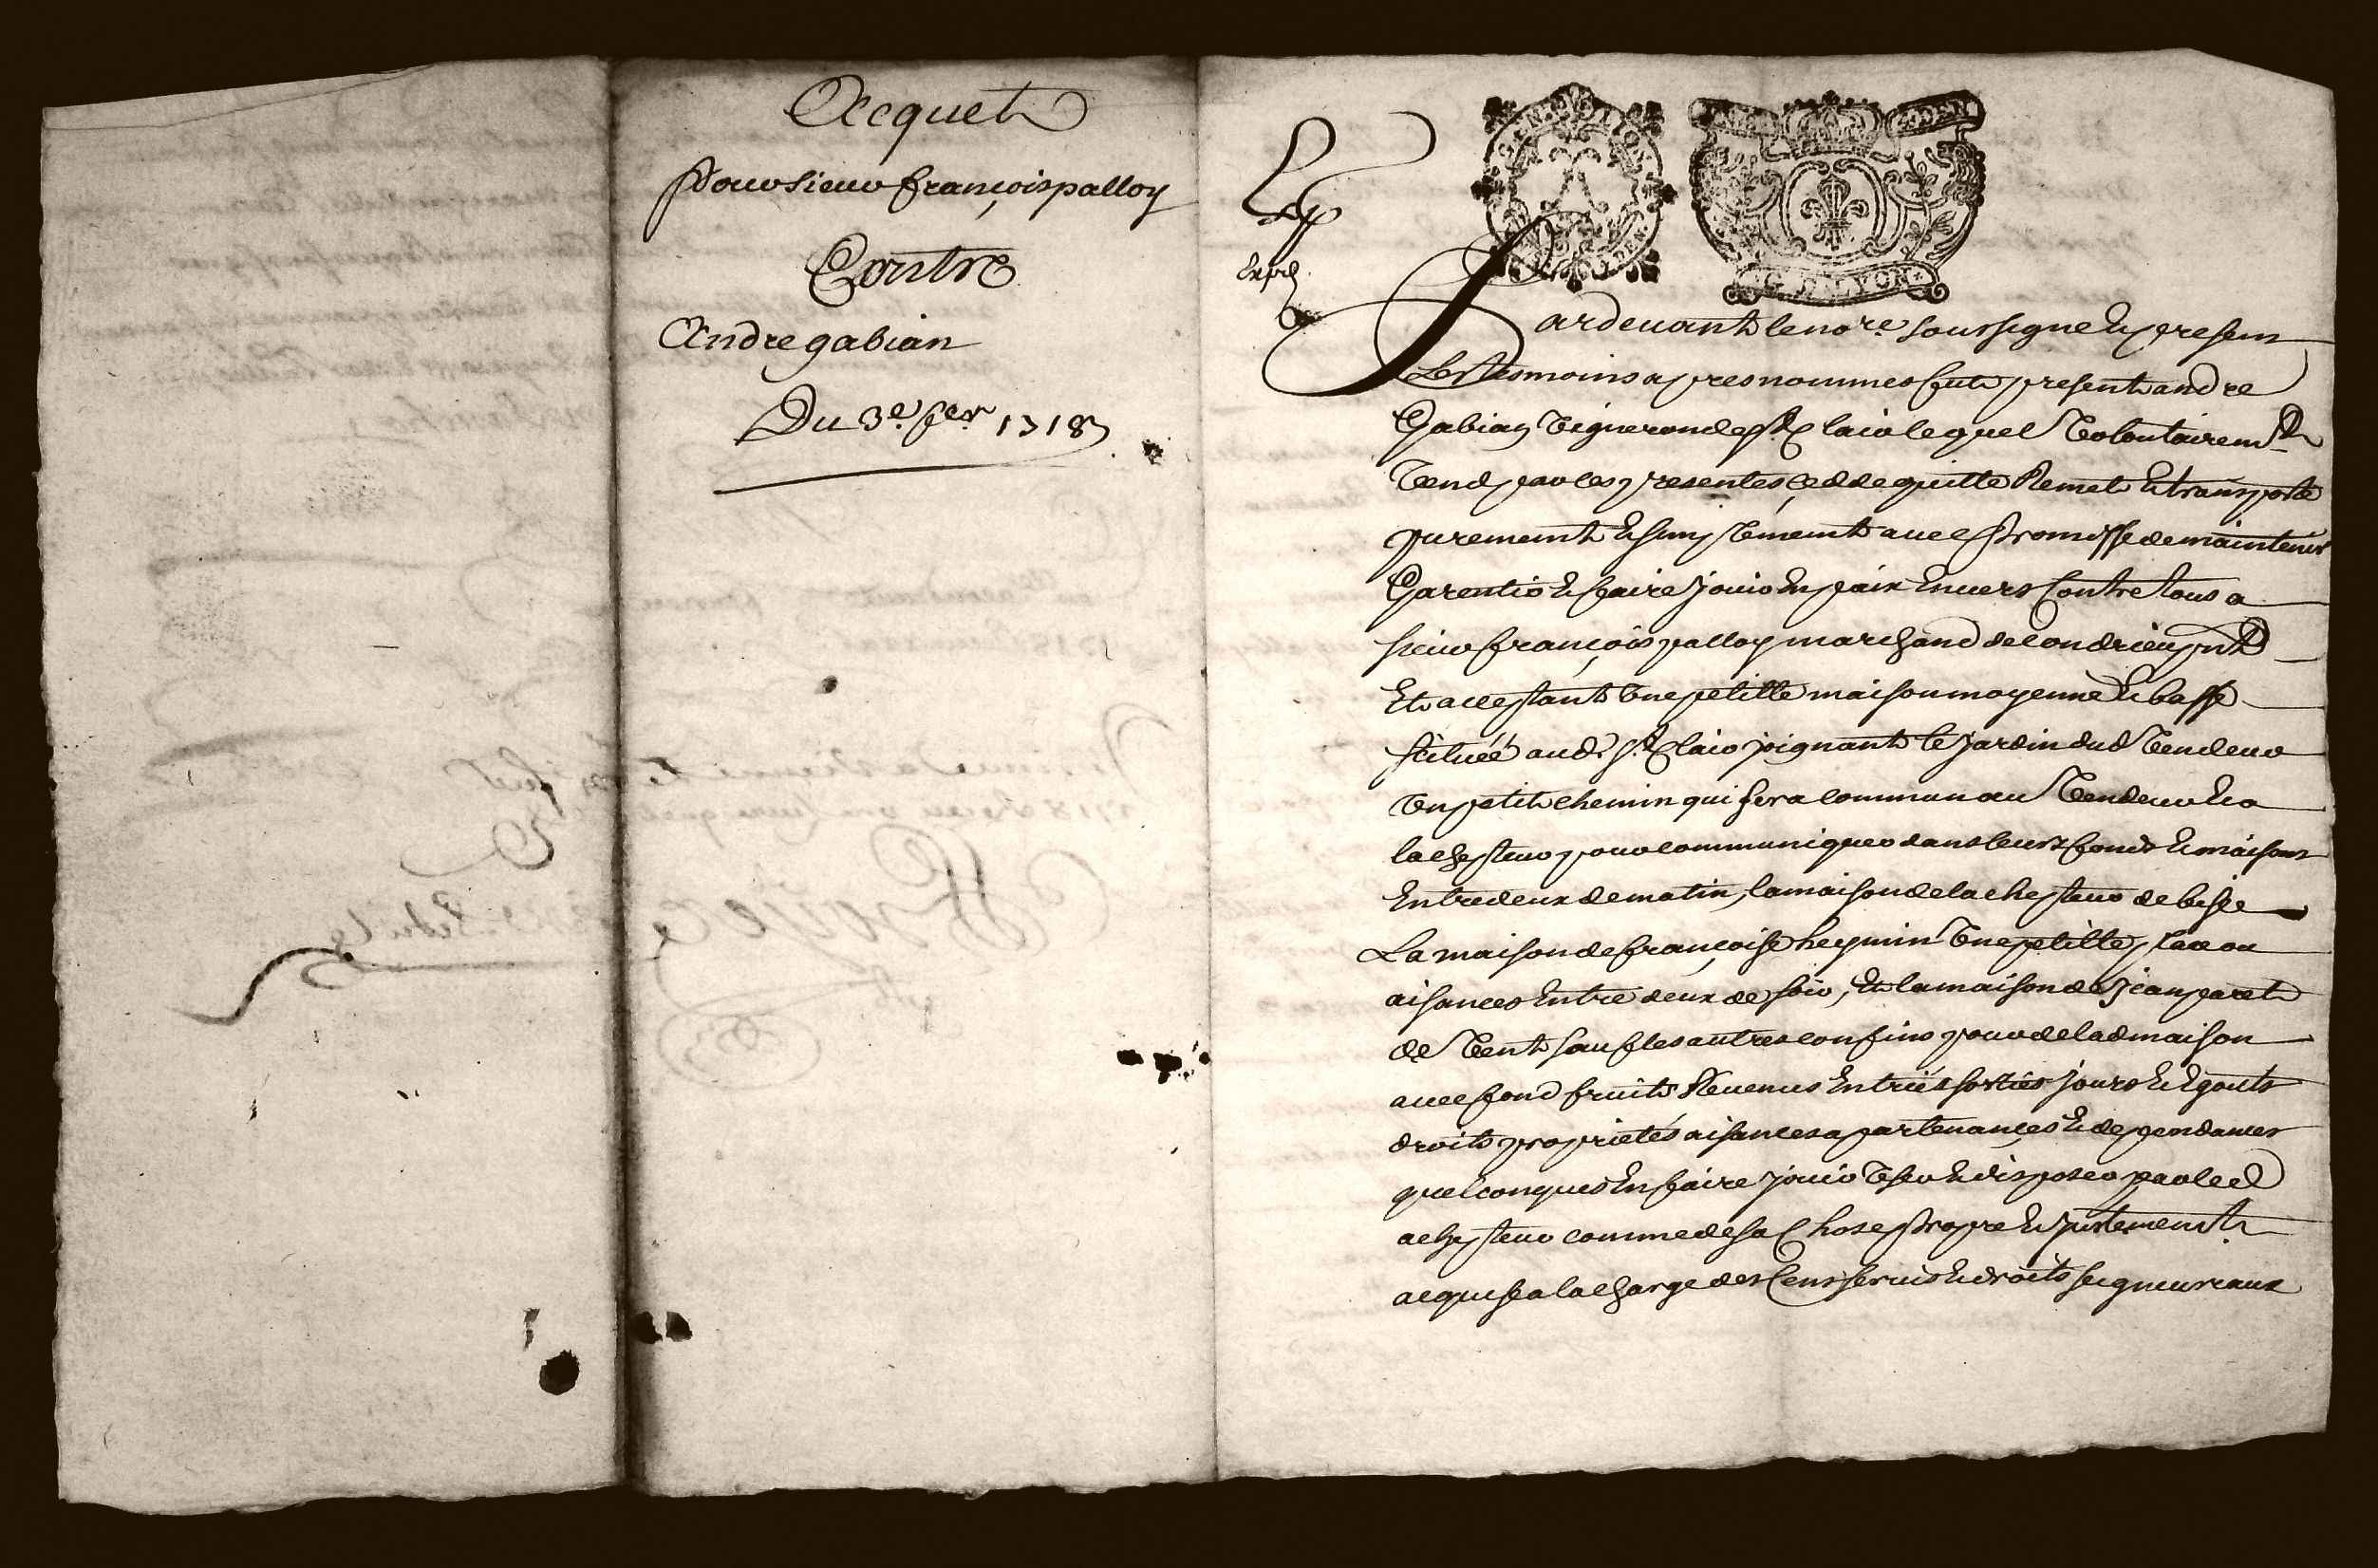 Acquet
Pour sieur françois palloy
Contre
Andre gabian
Du 3e. fer 1718
Exped
G. DE LYON
Pardevant le nore. soussigne Et presens
Les tesmoins apres nommes fut present andre
Gabian vigneron de st Clair lequel volontairemt
vend par ces presentes, cedde quitte Remet Et transporte
purement Et simplement avec promesse de maintenir
Garentir Et faire jouir En paix Envers Contre tous a
sieur françois palloy marchand de Condrieu pnt
Et acceptant une petitte maison moyenne Et basse
scituéé aud. st Clair joignant le jardin dud vendeur
un petit chemin qui sera commun au vendeur Et a
lachepteur pour communiquer dans leurs fonds Et maisons
Entredeux de matin, la maison de lachepteur de bise
La maison de françoise heymin une petitte place ou
aisances Entre deux de soir, Et la maison de Jean paret
de vent sauf les autres confins pour de lad maison
avec fond fruits Revenus Entriés sorties jours Et Egouts
droits proprietés aisances apartenançes Et dependances
quelconques En faire jouir user Et disposer par led
achepteur comme de sa Chose propre Et justement
acquise a la charge des Cens servis Et droits seigneuriaux